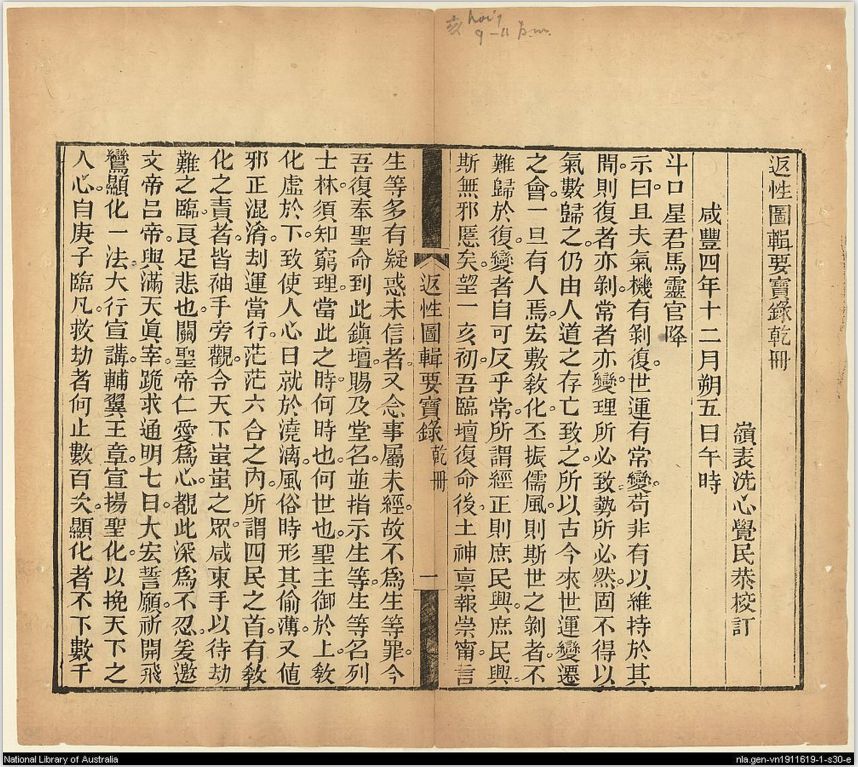 亥 hoi,
9-11 p.m.
返性圖輯要寶錄乾冊
嶺表洗心覺民恭校訂
咸豐四年十二月朔五日午時
斗口星君馬靈官降
示曰且夫氣機有剝復。世運有常變。苟非有以維持於其
間則復者亦剝常者亦變。理所必致勢所必然。固不得以
氣數歸之。仍由人道之存亡致之。所以古今來世運變遷
之會。一旦有人焉。宏敷敎化。丕振儒風。則斯世之剝者不
難歸於復。變者自可反乎常。所謂經正則庶民興。庶民興
斯無邪慝矣。望一亥初。吾臨壇復命後。土神禀報崇甯言
生等多有疑惑未信者。又念事屬未經。故不爲生等罪。今
吾復奉聖命到此鎭壇。賜及堂名。並指示生等。生等名列
士林。須知窮理。當此之時何時也。何世也。聖主御於上。敎
化虛於下。致使人心日就於澆漓。風俗時形其偷薄。又值
邪正混淆。刧運當行。茫茫六合之內。所謂四民之首。有敎
化之責者。皆袖手旁觀。令天下蚩蚩之眾。咸束手以待劫
難之臨。良足悲也。關聖帝仁愛爲心。覩此深爲不忍。爰邀
文帝呂帝。與滿天眞宰。跪求通明七日。大宏誓願。祈開飛
鸞顯化一法。大行宣講。輔翼王章。宣揚聖化。以挽天下之
人心。自庚子臨凡救劫者何止數百次。顯化者不下數千
返性圖輯要寶錄 乾冊 一
National Library of Australia
nla.gen-vn1911619-1-s30-e